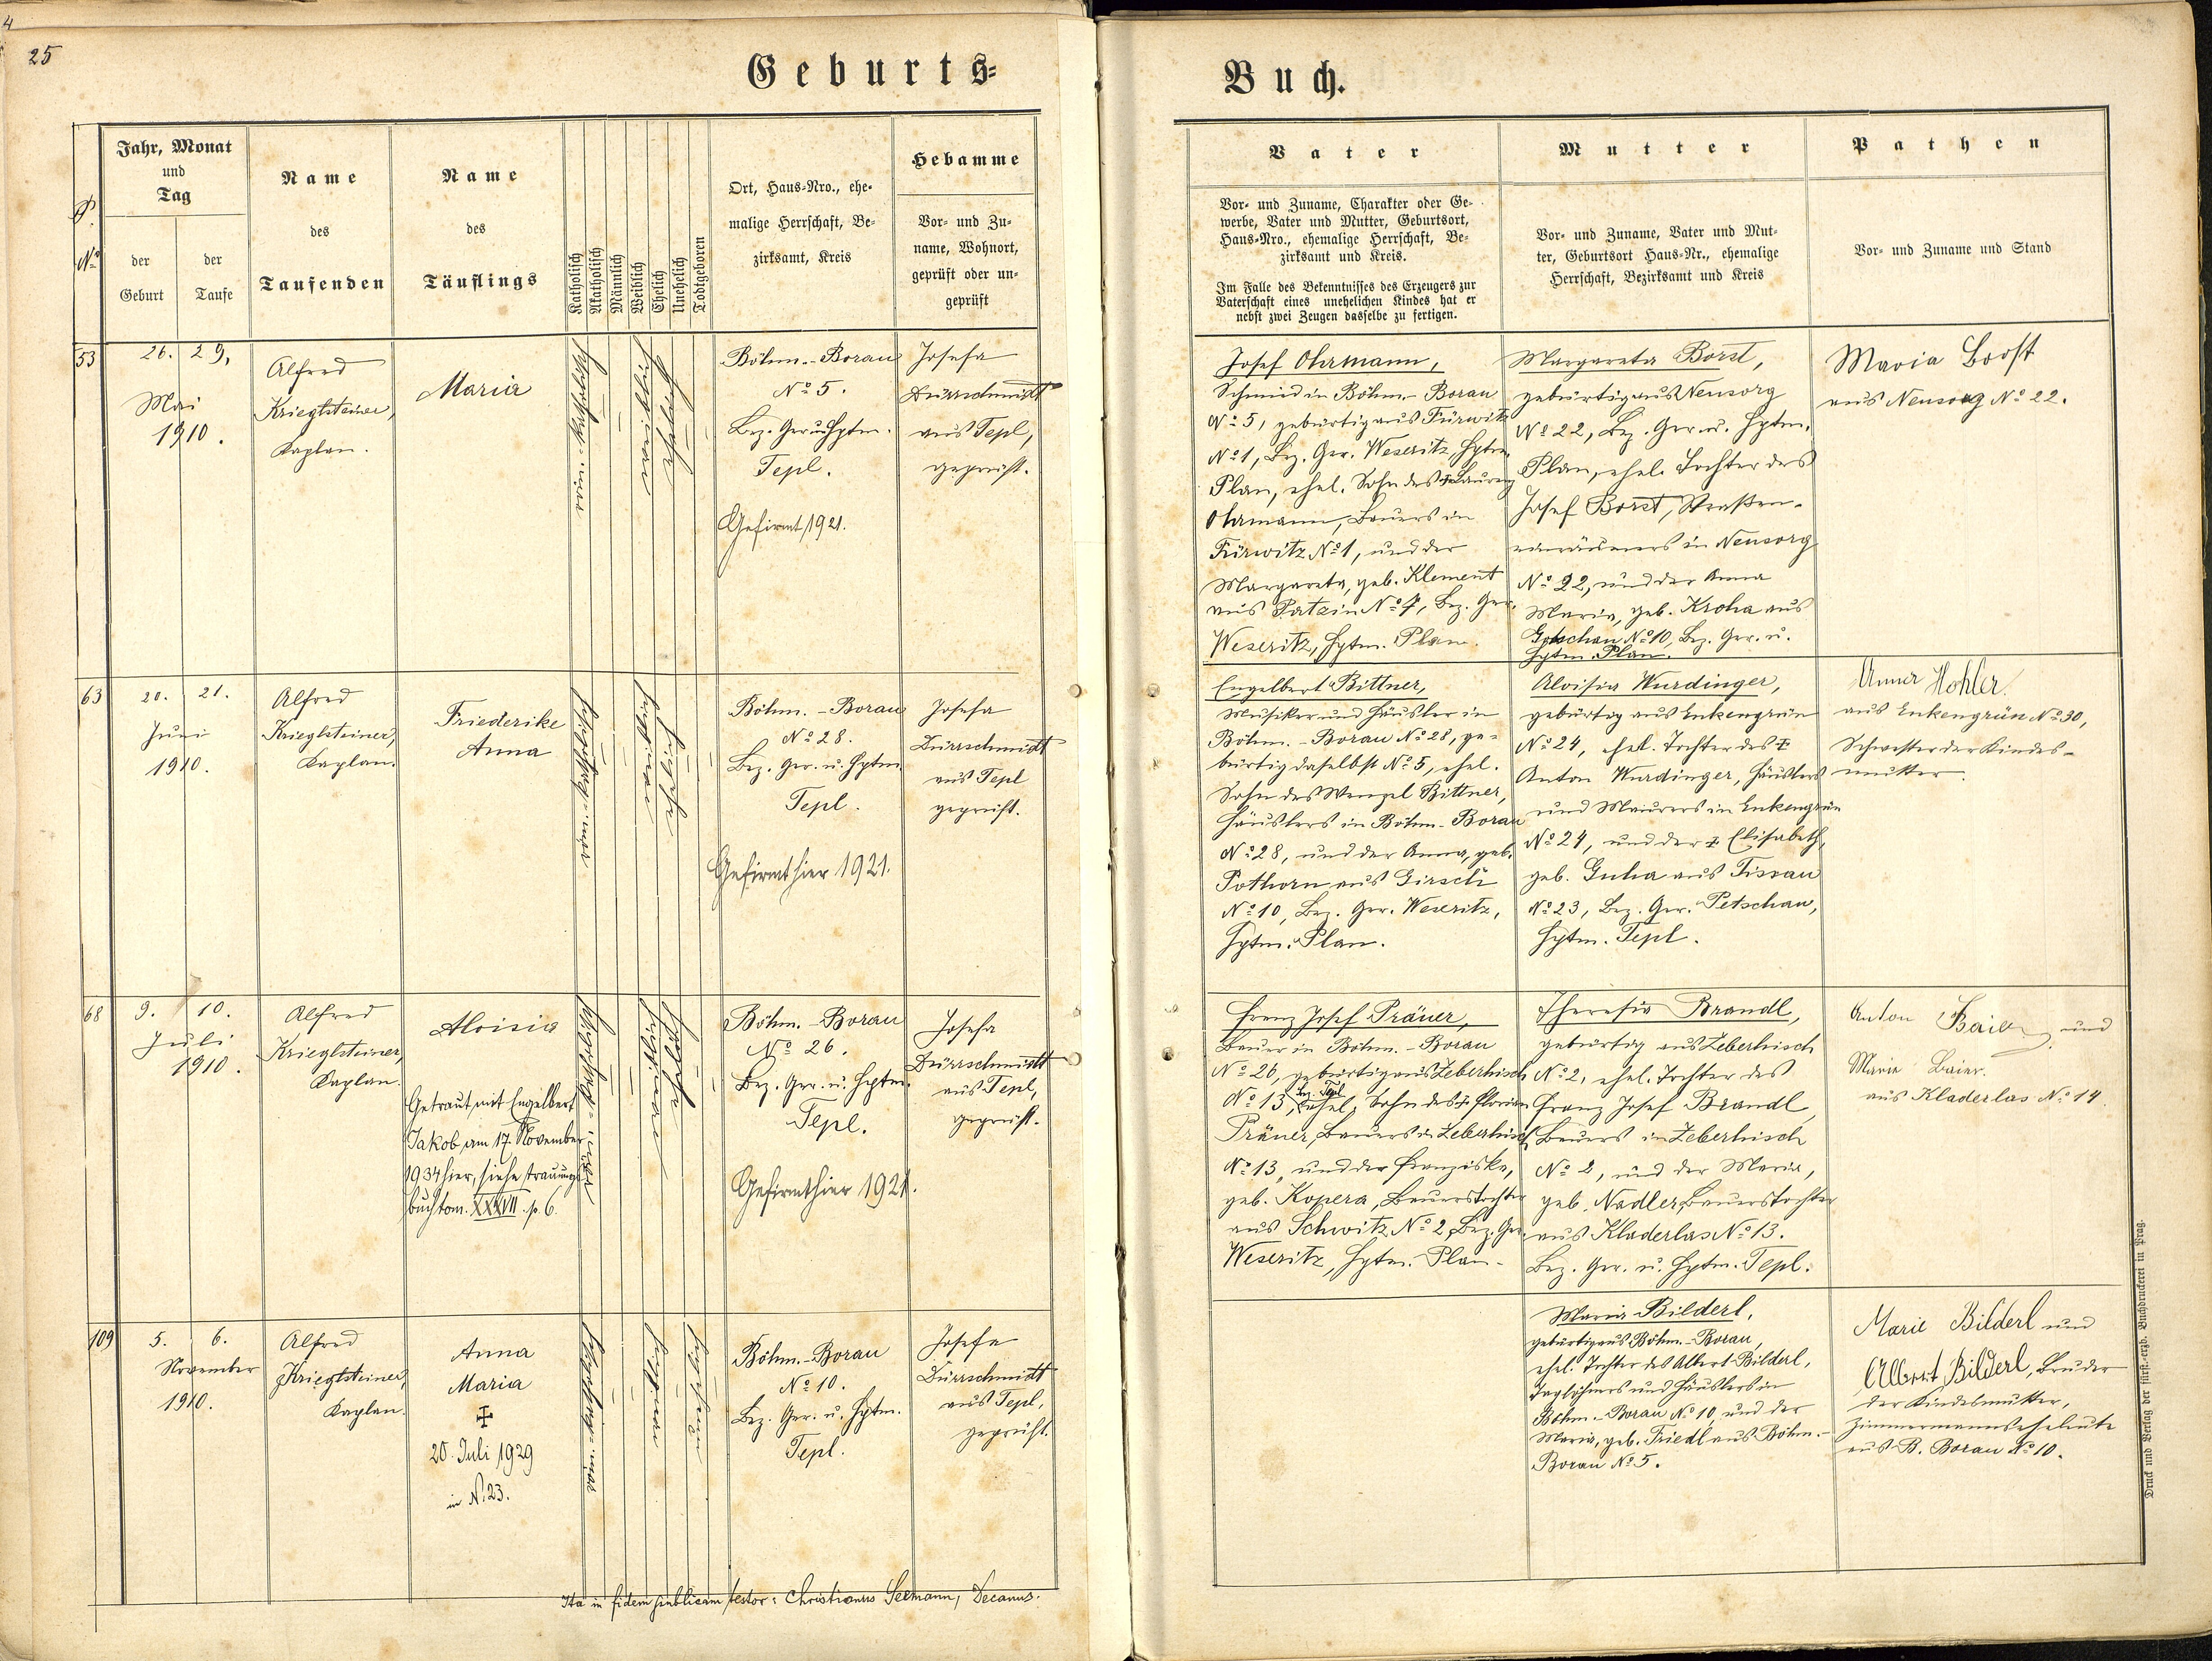 4
25
Geburts-
Jahr, Monat
und
Tag
der
Geburt
der
Taufe
Name
des
Taufenden
Name
des
Täuflings
Katholisch
Akatholisch
Männlich
Weiblich
Ehelich
Unehelich
Todtgeboren
Ort, Haus-Nro., ehe-
malige Herrschaft, Be-
zirksamt, Kreis
Hebamme
Vor- und Zu-
name, Wohnort,
geprüft oder un-
geprüft
53
26. 29.
Mai
1910.
Alfred
Krieglsteiner,
Kaplan.
Maria
Böhm.-Borau
No 5.
Bez. Ger. u. Hptm.
Tepl.
Gefirmt 1921.
Josefa
Dürrschmidt
aus Tepl,
geprüft.
63
20. 21.
Juni
1910.
Alfred
Krieglsteiner,
Kaplan.
Friederike
Anna
Böhm.-Borau
No 28.
Bez. Ger. u. Hptm.
Tepl.
Gefirmt hier 1921.
Josefa
Dürrschmidt
aus Tepl
geprüft.
68
9. 10.
Juli
1910.
Alfred
Krieglsteiner,
Kaplan.
Aloisia
Getraut mit Engelbert
Jakob am 17. November
1934 hier, siehe Trauungs
buch tom. XXXVII. p. 6.
Böhm.-Borau
No 26.
Bez. Ger. u. Hptm.
Tepl.
Gefirmt hier 1921.
Josefa
Dürrschmidt
aus Tepl,
geprüft.
109
5. 6.
November
1910.
Alfred
Krieglsteiner,
Kaplan.
Anna
Maria
✠
20. Juli 1929
in N. 23.
Böhm.-Borau
No 10.
Bez. Ger. u. Hptm.
Tepl.
Josefa
Dürrschmidt
aus Tepl,
geprüft.
Ita in fidem publicam testor: Christianus Seemann, Decanus.
Buch.
Vater
Vor- und Zuname, Charakter oder Ge-
werbe, Vater und Mutter, Geburtsort,
Haus-Nro., ehemalige Herrschaft, Be-
zirksamt und Kreis.
Im Falle des Bekenntnisses des Erzeugers zur
Vaterschaft eines unehelichen Kindes hat er
nebst zwei Zeugen dasselbe zu fertigen.
Mutter
Vor- und Zuname, Vater und Mut-
ter, Geburtsort Haus-Nr., ehemalige
Herrschaft, Bezirksamt und Kreis
Pathen
Vor- und Zuname und Stand
Josef Ohrmann,
Schmied in Böhm.-Borau
No 5, gebürtig aus Fürwitz
No 1, Bez. Ger. Weseritz, Hptm.
Plan, ehel. Sohn des Laurenz
Ohrmann, Bauers in
Fürwitz No 1, und der
Margareta, geb. Klement
aus Patzin No 7, Bez. Ger.
Weseritz, Hptm. Plan.
Margareta Borst,
gebürtig aus Neusorg
No 22, Bez. Ger. u. Hptm.
Plan, ehel. Tochter des
Josef Borst, Straßen-
einräumers in Neusorg
No 22, und der Anna
Maria, geb. Kroha aus
No 10, Bez. Ger. u.
Hptm. Plan.
Maria Borst
aus Neusorg No 22.
Engelbert Bittner,
Musiker und Häusler in
Böhm.-Borau No 28, ge-
bürtig daselbst No 5, ehel.
Sohn des Wenzel Bittner,
Häuslers in Böhm-Borau
No 28, und der Anna, geb.
Pothorn aus Girsch
No 10, Bez. Ger. Weseritz,
Hptm. Plan.
Aloisia Wurdinger,
gebürtig aus Enkengrün
No 24, ehel. Tochter des ✠
Anton Wurdinger, Häuslers
und Maurers in Enkengrün
No 24, und der ✠ Elisabeth,
geb. Guha aus Tissau
No 23, Bez. Ger. Petschau,
Hptm. Tepl.
Anna Hohler
aus Enkengrün No 30,
Schwester der Kindes-
mutter.
Franz Josef Präuer,
Bauer in Böhm.-Borau
No 26, gebürtig aus Zeberhisch
No 13, Bez. Tepl, ehel. Sohn des ✠ Florian
Präuer, Bauers in Zeberhisch
No 13, und der Franziska,
geb. Kopera, Bauerstochter
aus Schwitz No 2, Bez. Ger.
Weseritz, Hptm. Plan.
Theresia Brandl,
gebürtig aus Zeberhisch
No 2, ehel. Tochter des
Franz Josef Brandl,
Bauers in Zeberhisch
No 2, und der Maria,
geb. Nadler, Bauerstochter
aus Kladerlas No 13.
Bez. Ger. u. Hptm. Tepl.
Anton Baier und
Marie Baier
aus Kladerlas No 14.
Maria Bilderl,
gebürtig aus Böhm.-Borau,
ehel. Tochter des Albert Bilderl,
Taglöhners und Häuslers in
Böhm.-Borau No 10, und der
Maria, geb. Friedl aus Böhm.-
Borau No 5.
Marie Bilderl und
Albert Bilderl, Bruder
der Kindesmutter,
Zimmermannseheleute
aus B. Borau No 10.
Druck und Verlag der fürst.-erzb. Buchdruckerei in Prag.